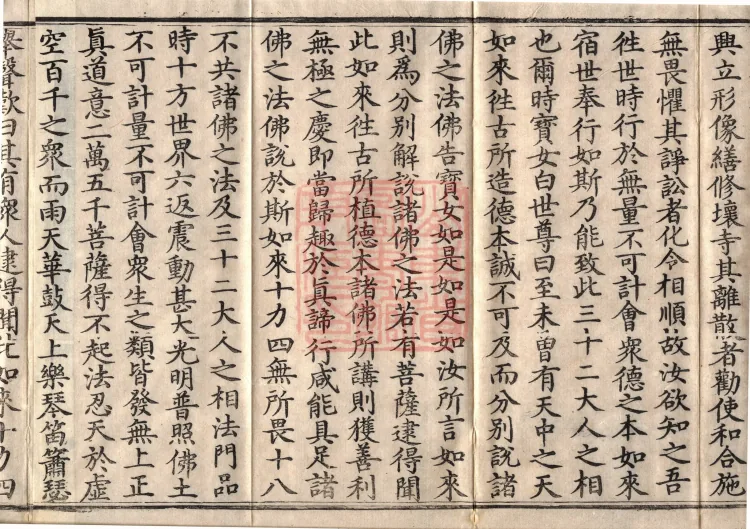 興立形像繕修壞寺其離散者勸使和合施
無畏懼其諍訟者化令相順故汝欲知之吾
徃世時行於無量不可計會衆德之本如來
宿世奉行如斯乃能致此三十二大人之相
也爾時寶女白世尊曰至未曽有天中之天
如來徃古所造德本誠不可及而分別說諸
佛之法佛告寶女如是如是如汝所言如來
則為分別解說諸佛之法若有菩薩逮得聞
此如來徃古所植德本諸佛所講則獲善利
無極之慶即當歸趣於眞諦行咸能具足諸
佛之法佛說於斯如來十力四無所畏十八
不共諸佛之法及三十二大人之相法門品
時十方世界六返震動甚大光明普照佛土
不可計量不可計會衆生之類皆發無上正
眞道意二萬五千菩薩得不起法忍天於虛
空百千之衆而雨天華鼓天上樂琴笛簫瑟
舉聲歎曰其有衆人逮得聞此如來十力四